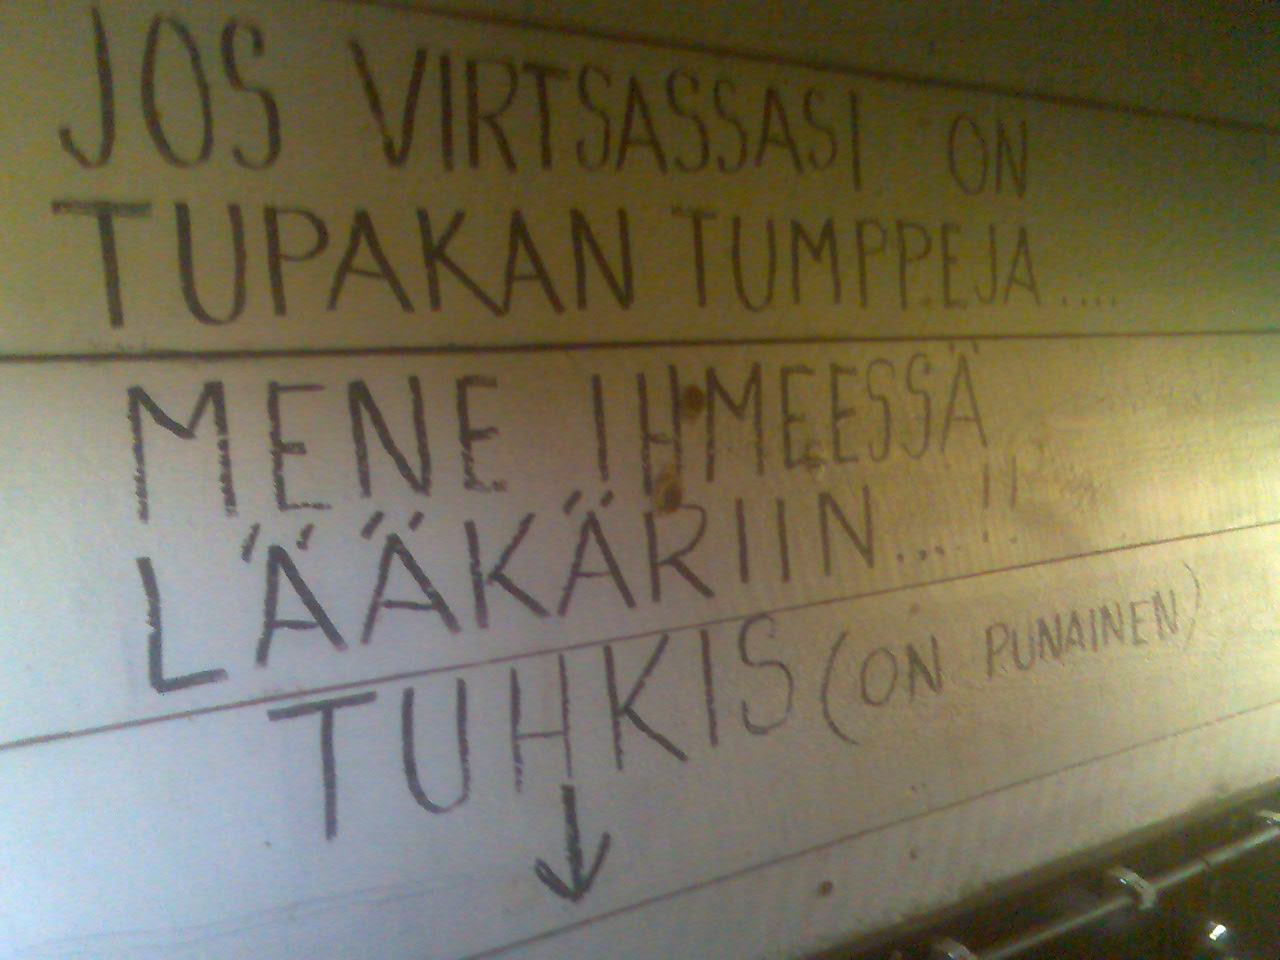 JOS VIRTSASSASI ON
TUPAKAN TUMPPEJA....
MENE IHMEESSÄ
LÄÄKÄRIIN....!!
TUHKIS (ON PUNAINEN)